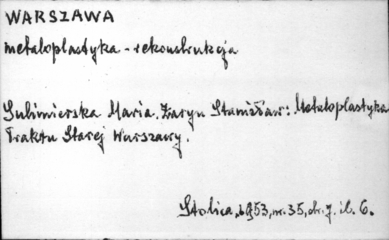 WARSZAWA
metaloplastyka - rekonstrukcja
Subimierska Maria. Żaryn Stanisław: Metaloplastyka
Traktu Starej Warszawy.
Stolica, 1953, nr. 35, str. 7. il. 6.